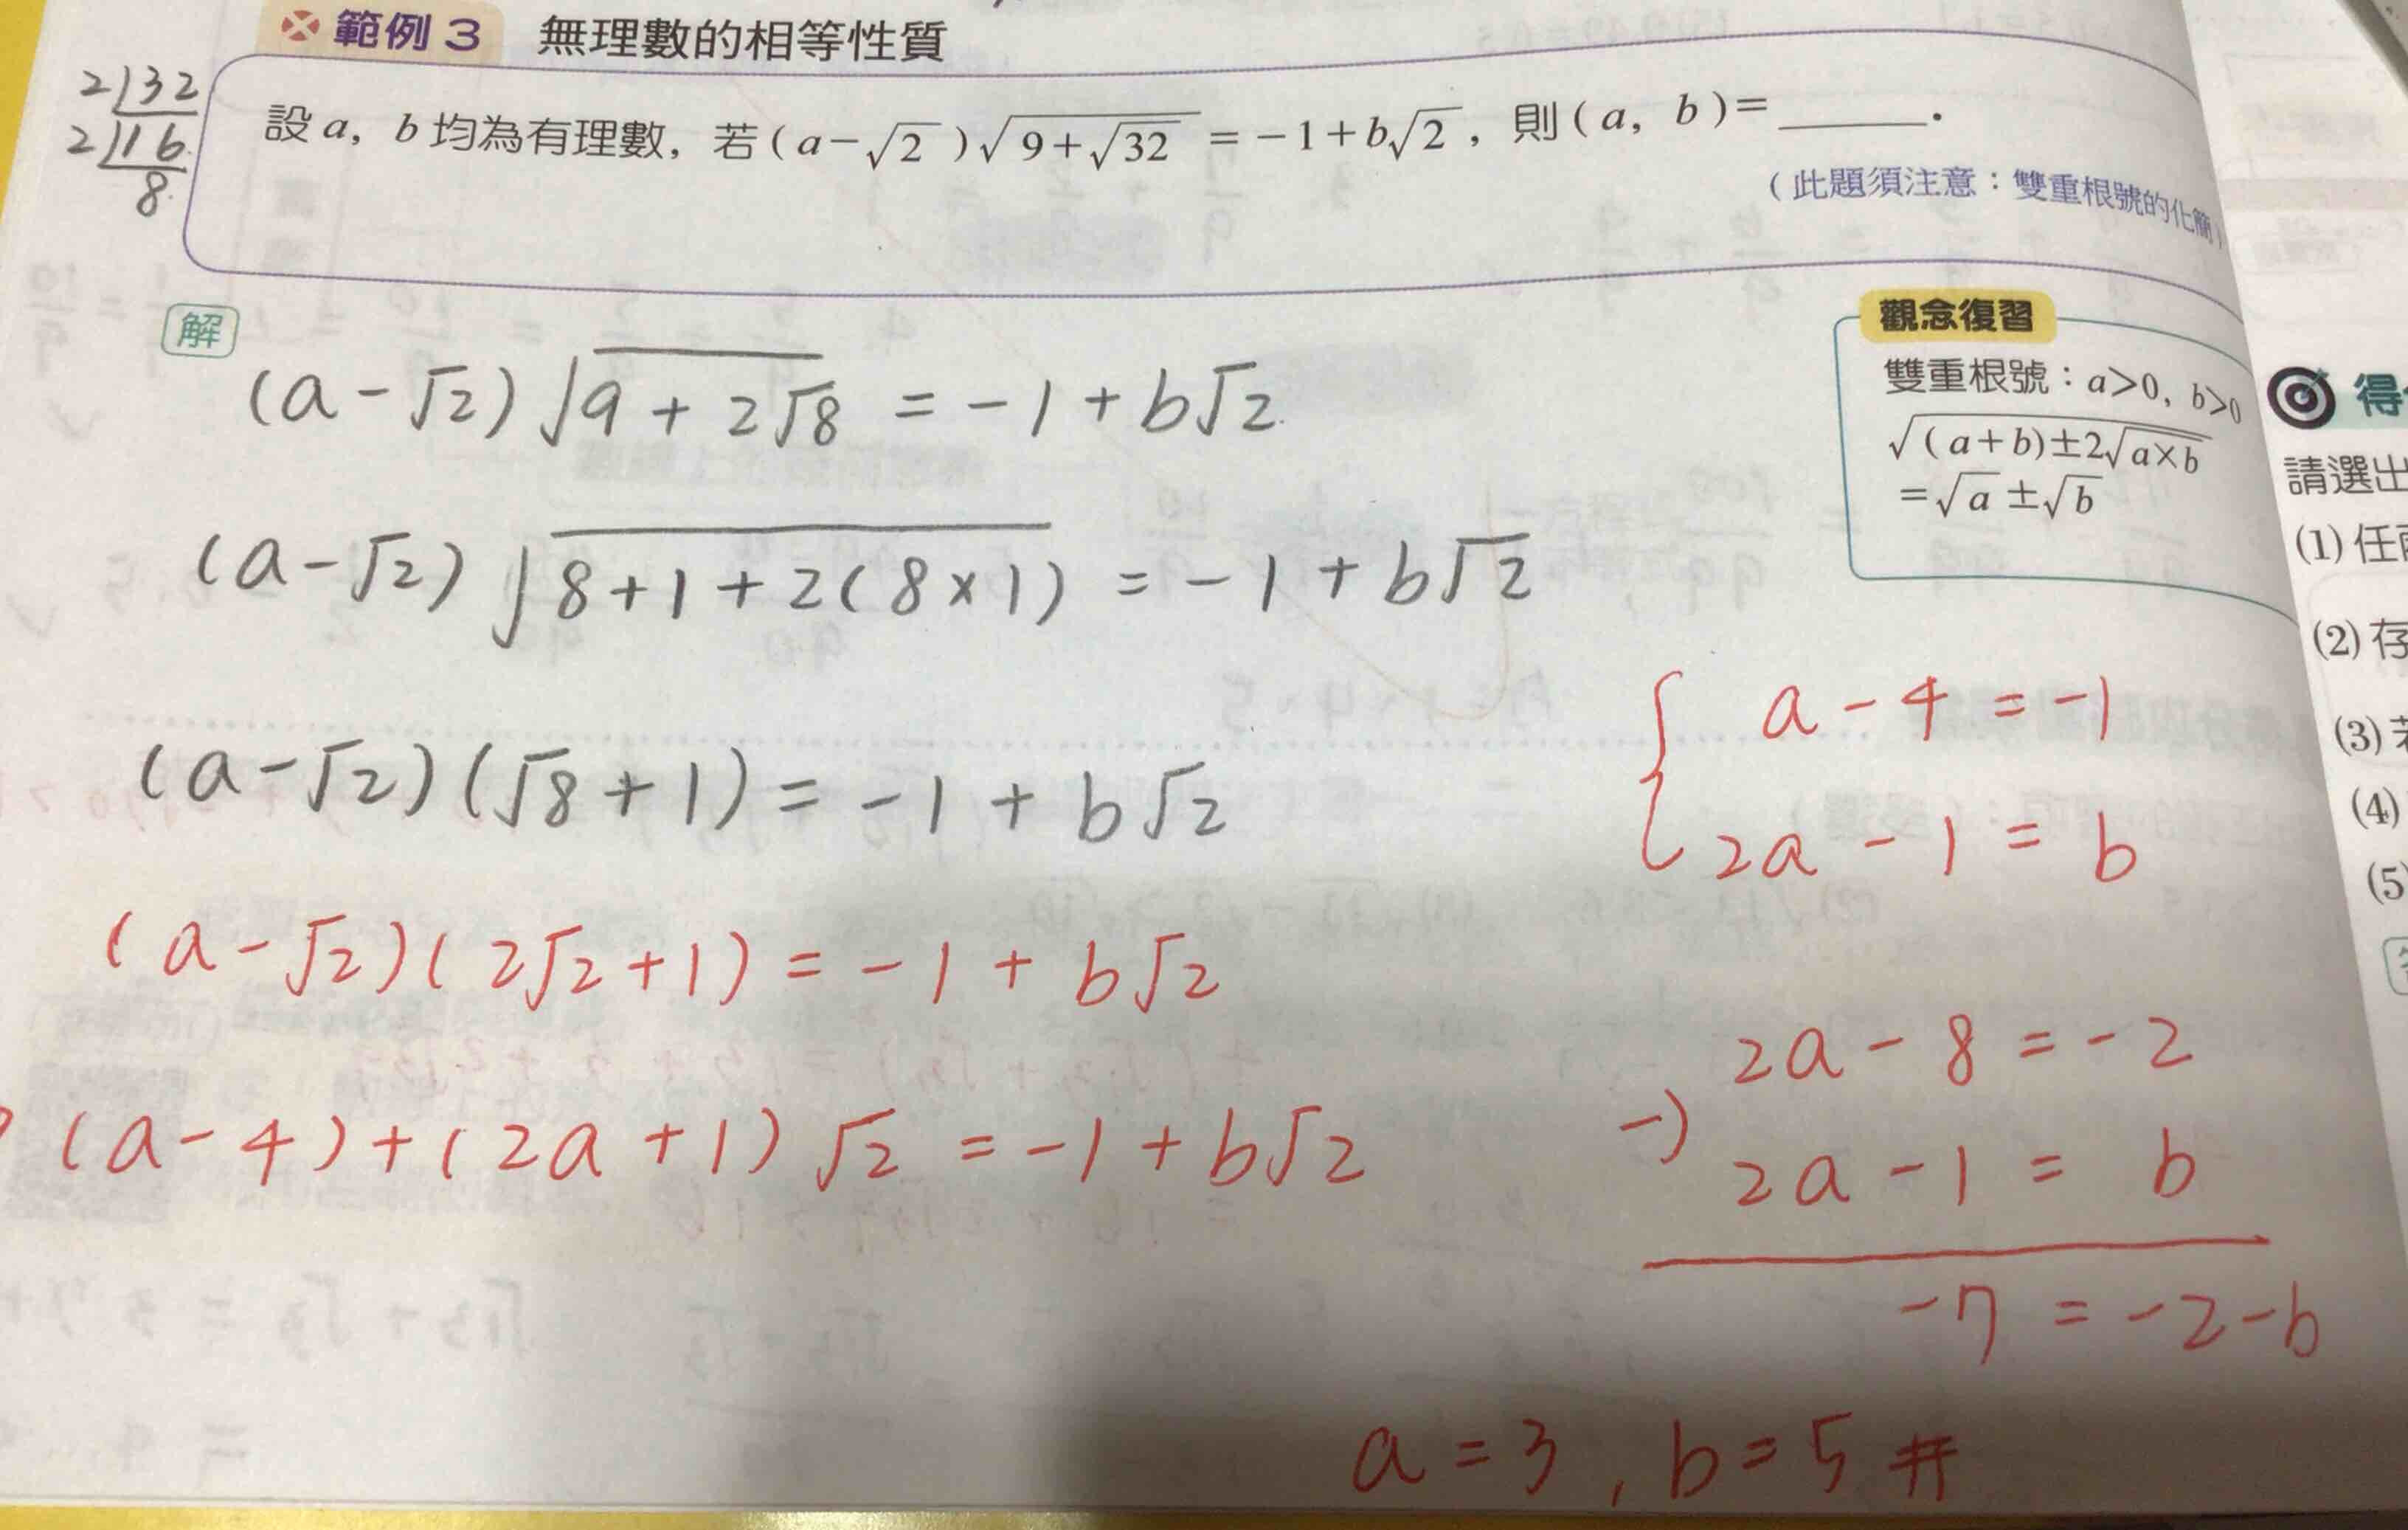 範例 3 無理數的相等性質
2)32
2)16
8
設 a, b 均為有理數, 若 (a-√2)√(9+√32) = -1+b√2, 則 (a, b)=______.
(此題須注意:雙重根號的化簡)
解
(a-√2)√(9+2√8) = -1+b√2
(a-√2)√(8+1+2(8×1)) = -1+b√2
(a-√2)(√8+1) = -1+b√2
(a-√2)(2√2+1) = -1+b√2
(a-4)+(2a+1)√2 = -1+b√2
觀念復習
雙重根號:a>0, b>0
√((a+b)±2√(a×b))
=√a±√b
{ a-4=-1
2a-1=b
2a-8=-2
-) 2a-1=b
-7=-2-b
a=3, b=5 #
請選出
(1) 任
(2) 存
(3)
(4)
(5)